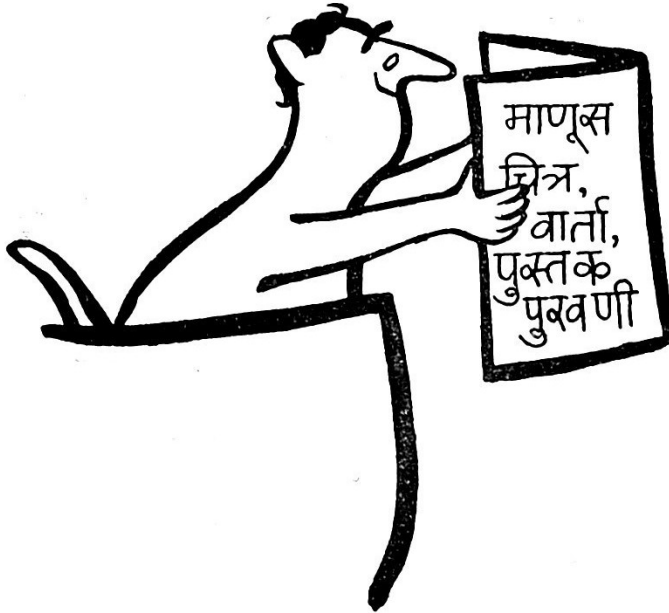 माणूस
चित्र,
वार्ता,
पुस्तक
पुरवणी